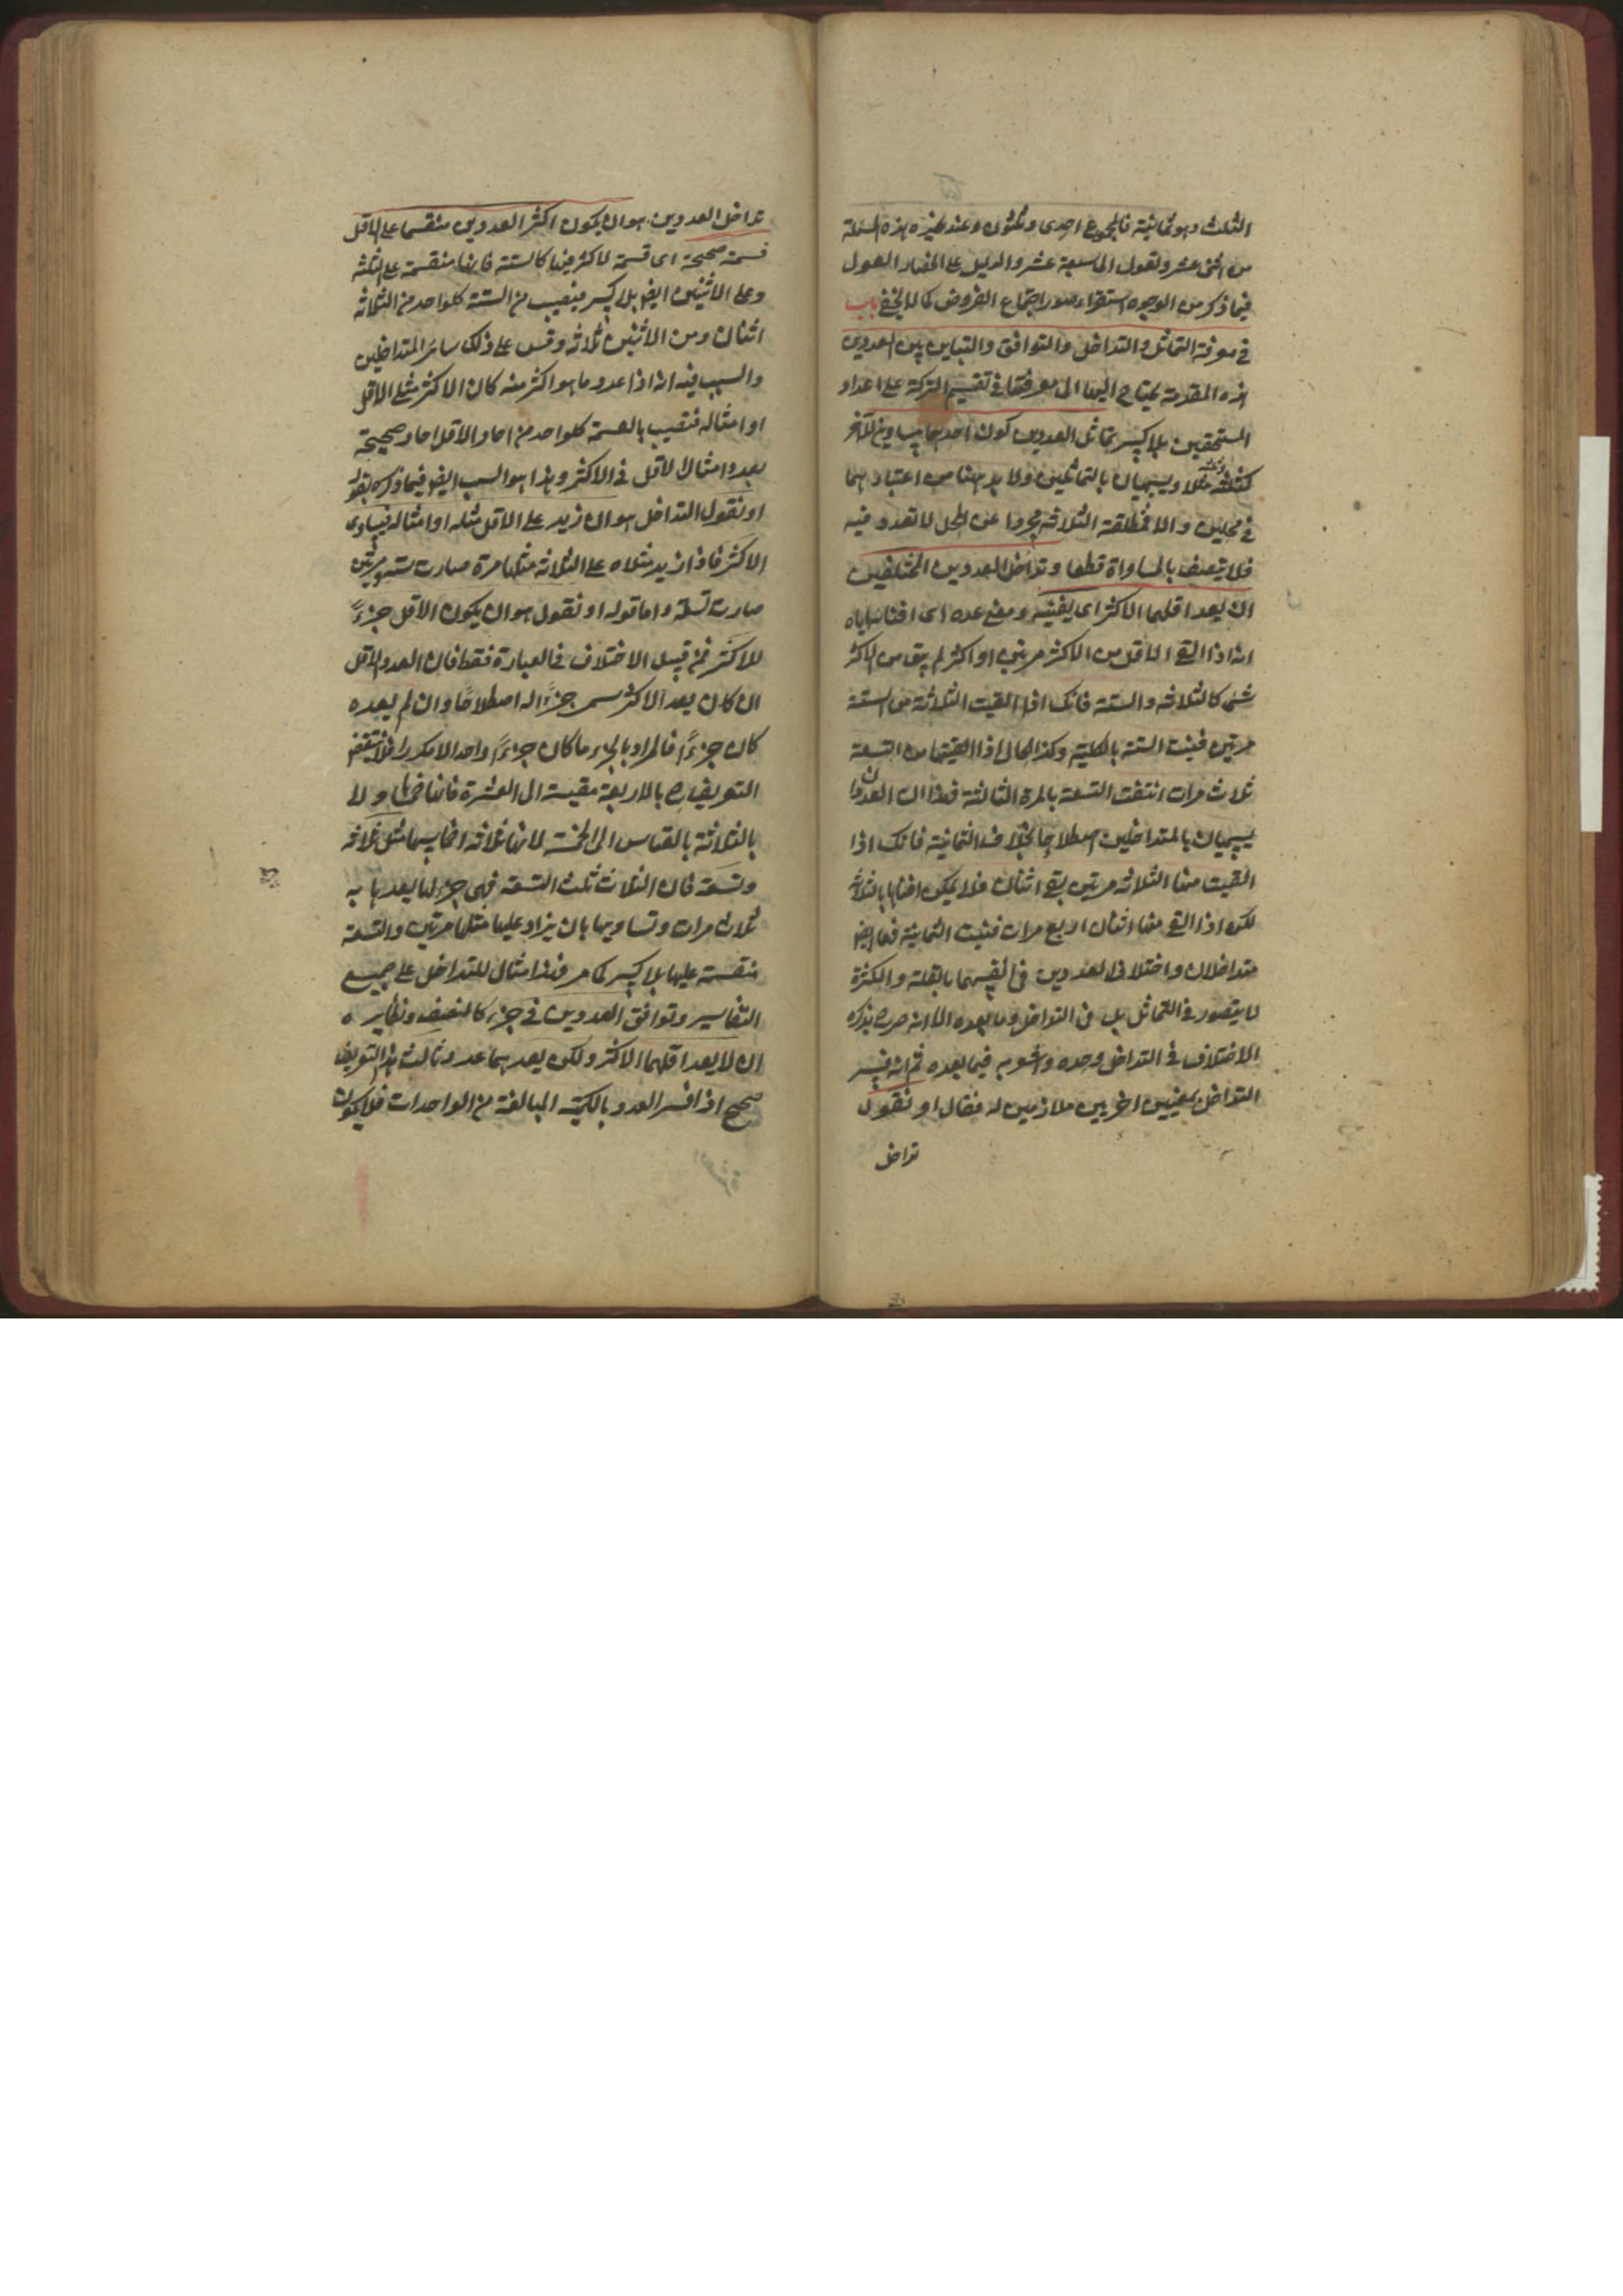 الثلث وهو ثمانية فالمجموع احدى وثلثون وعند غيره هذه المسئلة
من اثنى عشر وتعول الى سبعة عشر والدليل على انحصار العول
فيما ذكر من الوجوه استقراء صور اجتماع الفروض كما لا يخفى باب
فى معرفة التماثل والتداخل والتوافق والتباين بين العددين
هذه المقدمة يحتاج اليها الى معرفتها فى تقسيم التركة على اعداد
المستحقين بلا كسر تماثل العددين كون احدهما مساويا للآخر
كثلثة وثلثة مثلا ويسميان بالمتماثلين ولا بد ههنا من اعتبارهما
فى محلين والا فمطلقة الثلاثة مجردا عن المحل لا تعدد فيه
فلا يتصف بالمساواة قطعا وتداخل العددين المختلفين
ان يعد اقلهما الاكثر اى يفنيه ومعنى عده اى افنائه اياه
انه اذا القى الاقل من الاكثر مرتين او اكثر لم يبق من الاكثر
شئ كالثلاثة والستة فانك اذا القيت الثلاثة من الستة
مرتين فنيت الستة بالكلية وكذا الحال اذا القيتها من التسعة
ثلاث مرات انتفت التسعة بالمرة الثالثة فهذا ان العددان
يسميان بالمتداخلين اصطلاحا بخلاف الثمانية فانك اذا
القيت منها الثلاثة مرتين بقى اثنان فلا يمكن افناؤها بالثلاثة
لكن اذا القى منها اثنان اربع مرات فنيت الثمانية فهما ايضا
متداخلان واختلاف العددين فى انفسهما بالقلة والكثرة
لا يتصور فى التماثل بل فى التداخل وما بعده الا انه صرح بذكره
الاختلاف فى التداخل وحده واشعر به فيما بعده ثم انه فسر
التداخل بمعنيين اخريين ملازمين له فقال او نقول
تداخل
تداخل العددين هو ان يكون اكثر العددين منقسما على الاقل
قسمة صحيحة اى قسمة لا كسر فيها كالستة فانها منقسمة على الثلثة
وعلى الاثنين ايضا بلا كسر فنصيب من الستة كل واحد من الثلاثة
اثنان ومن الاثنين ثلاثة وقس على ذلك سائر المتداخلين
والسبب فيه انه اذا عد عدد ما هو اكثر منه كان الاكثر مثلى الاقل
او امثاله فنصيب بالقسمة كل واحد من احاد الاقل احاد صحيحة
بعدد امثال الاقل فى الاكثر وهذا هو السبب ايضا فيما ذكره بقوله
او نقول التداخل هو ان زيد على الاقل مثله او امثاله فيساوى
الاكثر فاذا زيد مثلاه على الثلاثة مثلها مرة صارت ستة ومرتين
صارت تسعة واما قوله او نقول هو ان يكون الاقل جزءا
للاكثر فمن قبيل الاختلاف فى العبارة فقط فان العدد الاقل
ان كان يعد الاكثر سمى جزءا له اصطلاحا وان لم يعده
كان جزءا فالمراد بالجزء ما كان جزءا واحدا لا مكررا فلا ينتقض
التعريف بالاربعة مقيسة الى العشرة فانها خمساها ولا
بالثلاثة بالقياس الى الخمسة لانها ثلاثة اخماسها مثل ثلاثة
وتسعة فان الثلاث ثلث التسعة فهى جزء لها يعدها به
ثلاث مرات وتساويها بان يزاد عليها مثلها مرتين والتسعة
منقسمة عليها بلا كسر كما مر فهذا مثال للتداخل على جميع
التفاسير وتوافق العددين فى جزء كالنصف ونظايره
ان لا يعد اقلهما الاكثر ولكن يعدهما عدد ثالث هذا التعريف
صحيح اذا فسر العدد بالكمية المبالغة من الواحدات فلا يكون